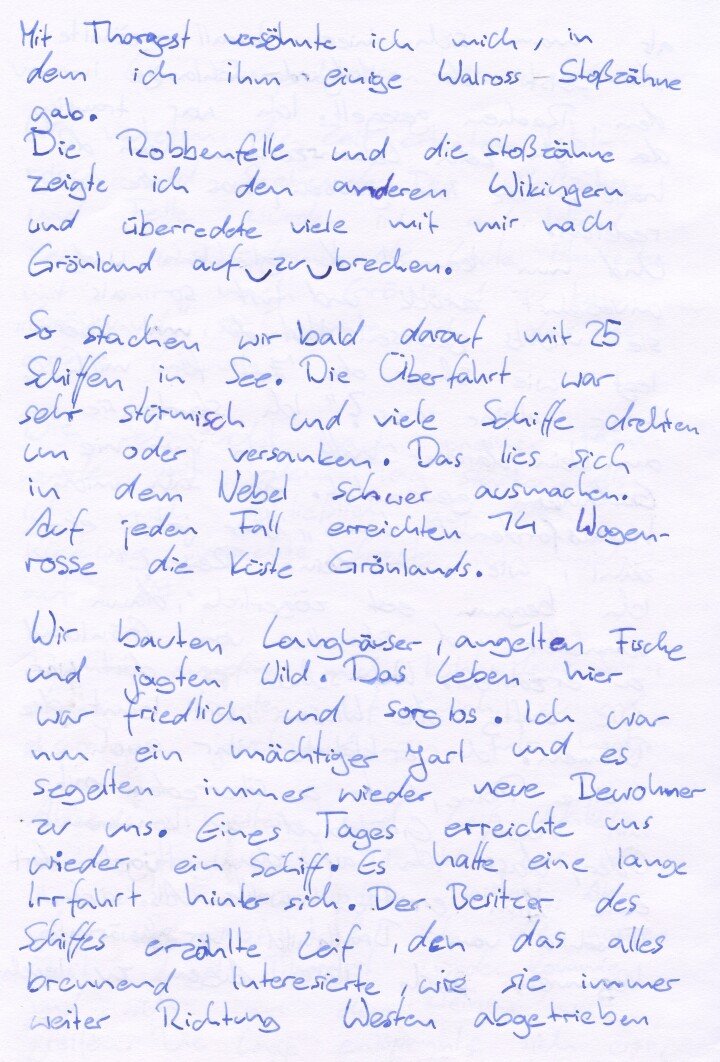 Mit Thorgest versöhnte ich mich, in
dem ich ihm einige Walross-Stoßzähne
gab.
Die Robbenfelle und die Stoßzähne
zeigte ich den anderen Wikingern
und überredete viele mit mir nach
Grönland auf‿zu‿brechen.

So stachen wir bald darauf mit 25
Schiffen in See. Die Überfahrt war
sehr stürmisch und viele Schiffe drehten
um oder versanken. Das lies sich
in dem Nebel schwer ausmachen.
Auf jeden Fall erreichten 14 Wogen-
rosse die Küste Grönlands.

Wir bauten Langhäuser, angelten Fische
und jagten Wild. Das Leben hier
war friedlich und sorglos. Ich war
nun ein mächtiger Jarl und es
segelten immer wieder neue Bewohner
zu uns. Eines Tages erreichte uns
wieder ein Schiff. Es hatte eine lange
Irrfahrt hinter sich. Der Besitzer des
Schiffes erzählte Leif, den das alles
brennend Interesierte, wie sie immer
weiter Richtung Westen abgetrieben